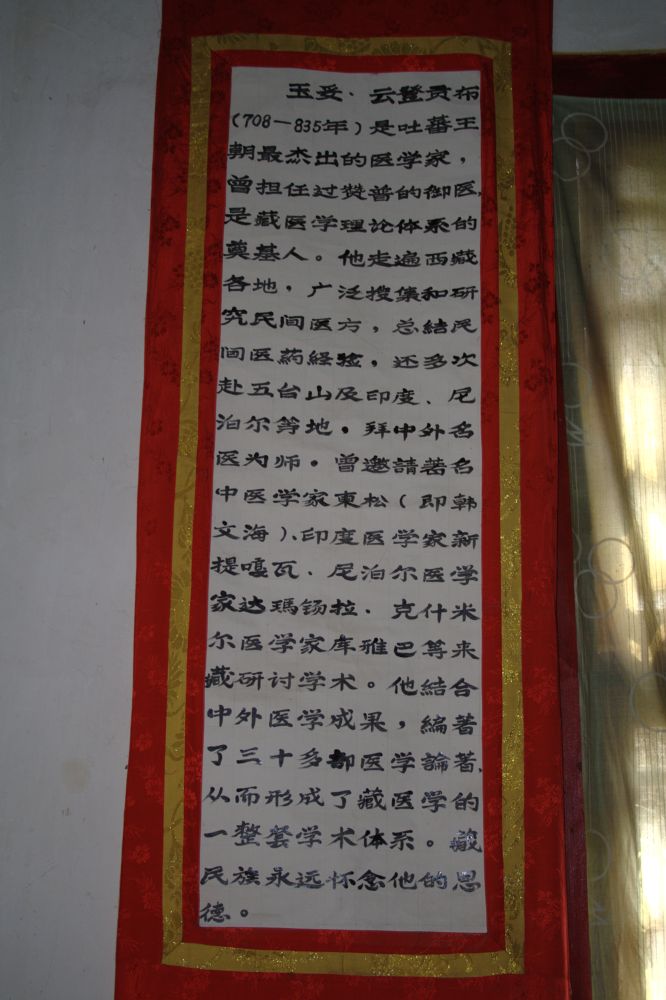 玉妥、云登贡布
(708—835年)是吐蕃王
朝最杰出的医学家，
曾担任过赞普的御医，
是藏医学理论体系的
奠基人。他走遍西藏
各地，广泛搜集和研
究民间医方，总结民
间医药経验，还多次
赴五台山及印度、尼
泊尔等地。拜中外名
医为师。曾邀請著名
中医学家東松(即韩
文海)、印度医学家新
提嘎瓦、尼泊尔医学
家达瑪锍拉、克什米
尔医学家库雅巴等来
藏研讨学术。他結合
中外医学成果，編著
了三十多部医学論著，
从而形成了藏医学的
一整套学术体系。藏
民族永远怀念他的恩
德。